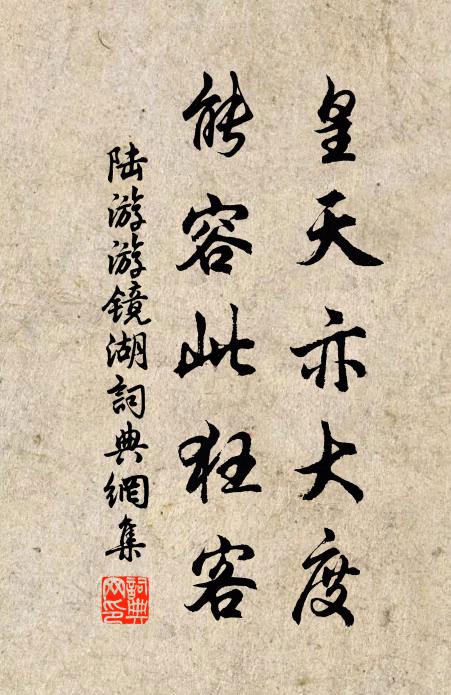 皇天亦大度
能容此狂客
陆游游镜湖詞典網集
詞典
网印